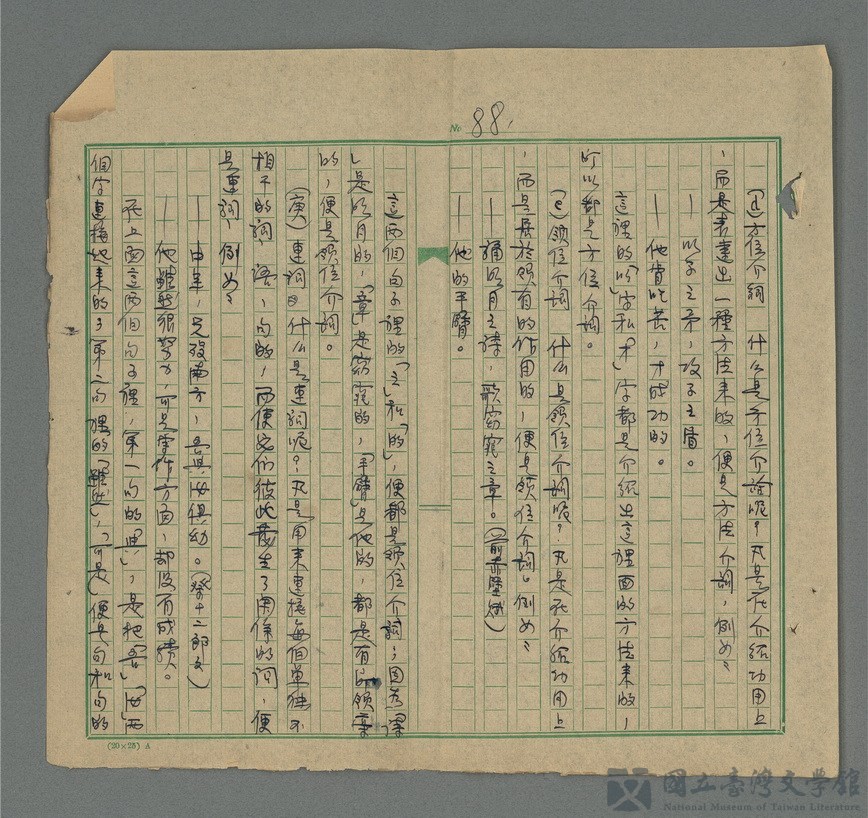 № 88.
(d)方位介詞 什么是方位介詞呢？凡是在介紹功用上
，而是表達出一種方法來的，便是方法介詞，例如：
—以子之矛，攻子之盾。
—他肯吃苦，才成功的。
這裡的「以」字和「才」字都是介紹出這裡面的方法來的，
所以都是方位介詞。
(e)領位介詞 什么是領位介詞呢？凡是在介紹功用上
，而是居於領有的作用的，便是領位介詞。例如：
—誦明月之詩，歌窈窕之章。（前赤壁賦）
—他的手臂。
這兩個句子裡的「之」和「的」，便都是領位介詞，因為「詩
」是明月的，「章」是窈窕的，「手臂」是他的，都是有所領
的，便是領位介詞。
(庚)連詞 什么是連詞呢？凡是用來連接每個單独不
相干的詞、語、句的，而使它们彼此發生了関係的詞，便
是連詞，例如：
—中年，兄殁南方，吾與汝俱幼。（祭十二郎文）
—他雖然很努力，可是學作方面，却没有成績。
在上面這两個句子裡，第一句的「與」，是把「吾」「汝」两
個字連接起來的；第二句裡的「雖然」，「可是」便是句和句的
(20×25) A
國立臺灣文學館
National Museum of Taiwan Literature